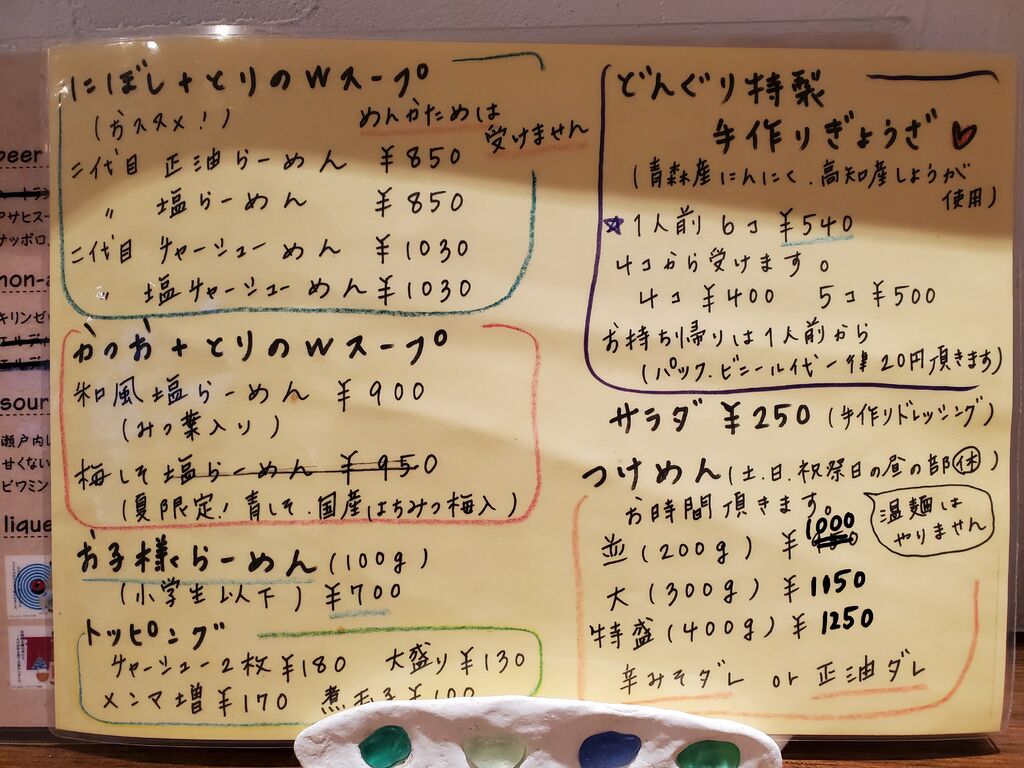 にぼし+とりのWスープ
(おススメ!)
めんかためは
受けません
二代目 正油らーめん ¥850
〃 塩らーめん ¥850
二代目 チャーシューめん ¥1030
〃 塩チャーシューめん ¥1030
かつお+とりのWスープ
和風塩らーめん ¥900
(みつ葉入り)
梅しそ塩らーめん ¥950
(夏限定!青しそ.国産はちみつ梅入)
お子様らーめん(100g)
(小学生以下) ¥700
トッピング
チャーシュー2枚¥180 大盛り¥130
メンマ増¥170 煮玉子¥100
どんぐり特製
手作りぎょうざ♡
(青森産にんにく.高知産しょうが
使用)
☆1人前 6コ ¥540
4コから受けます。
4コ ¥400 5コ ¥500
お持ち帰りは1人前から
(パック.ビニール代一律20円頂きます)
サラダ ¥250(手作りドレッシング)
つけめん(土.日.祝祭日の昼の部㊡)
お時間頂きます。
温麺は
やりません
並(200g) ¥1000
大(300g) ¥1150
特盛(400g) ¥1250
辛みそダレ or 正油ダレ
beer
アサヒスー
サッポロ
non-a
キリンゼッ
sour
瀬戸内レ
甘くない
ビワミン
lique